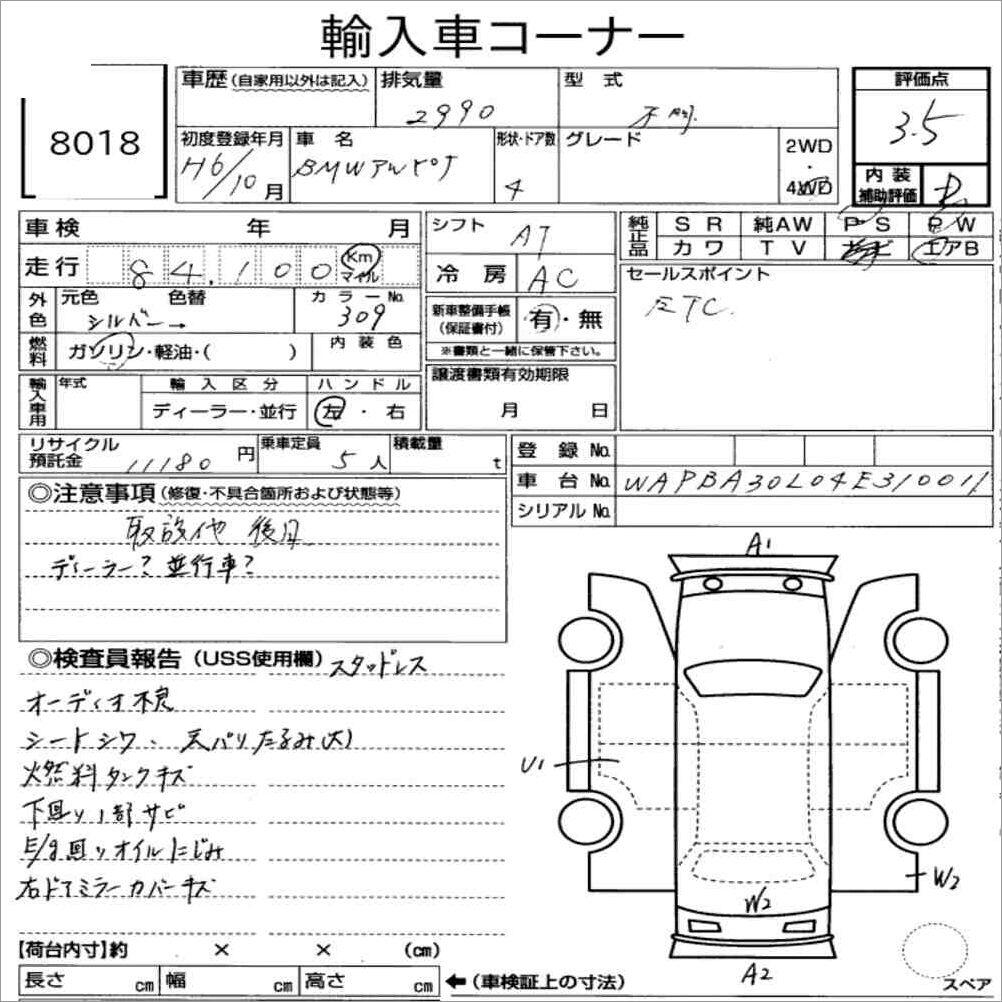 輸入車コーナー
8018
車歴(自家用以外は記入)
排気量
2990
型式
不明
評価点
3.5
初度登録年月
H6/10月
車名
BMWアルピナ
形状・ドア数
4
グレード
2WD
・
4WD
内装
補助評価
D
車検 年 月
走行 84,100 Km マイル
シフト
AT
冷房
AC
純正品
SR 純AW PS PW
カワ TV ナビ エアB
セールスポイント
ETC.
外色
元色 色替
シルバー→
カラーNo.
309
燃料
ガソリン・軽油・( )
内装色
新車整備手帳
(保証書付)
有・無
※書類と一緒に保管下さい。
輸入車用
年式
輸入区分
ディーラー・並行
ハンドル
左・右
譲渡書類有効期限
月 日
リサイクル
預託金
11180円
乗車定員
5人
積載量
t
登録No.
車台No. WAPBA30L04E310011
シリアルNo.
◎注意事項(修復・不具合箇所および状態等)
取説他 後日
ディーラー?並行車?
◎検査員報告(USS使用欄)スタッドレス
オーディオ不良
シートシワ、天バリたるみ(大)
燃料タンクキズ
下回り1部サビ
E/g回りオイルにじみ
右ドアミラーカバーキズ
A1
U1
W2
W2
A2
スペア
【荷台内寸】約 × × (cm)
長さ cm 幅 cm 高さ cm
←(車検証上の寸法)